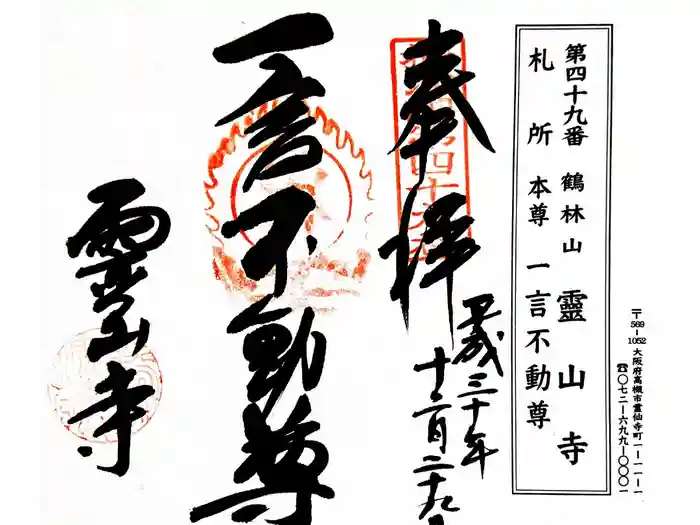 〒569-1052 大阪府高槻市霊仙寺町一-一一-一
☎〇七二-六九九-〇〇〇一
第四十九番 鶴林山 靈山寺
札所本尊 一言不動尊
奉拝
平成三十年
十二月二十九
一言不動尊
靈山寺